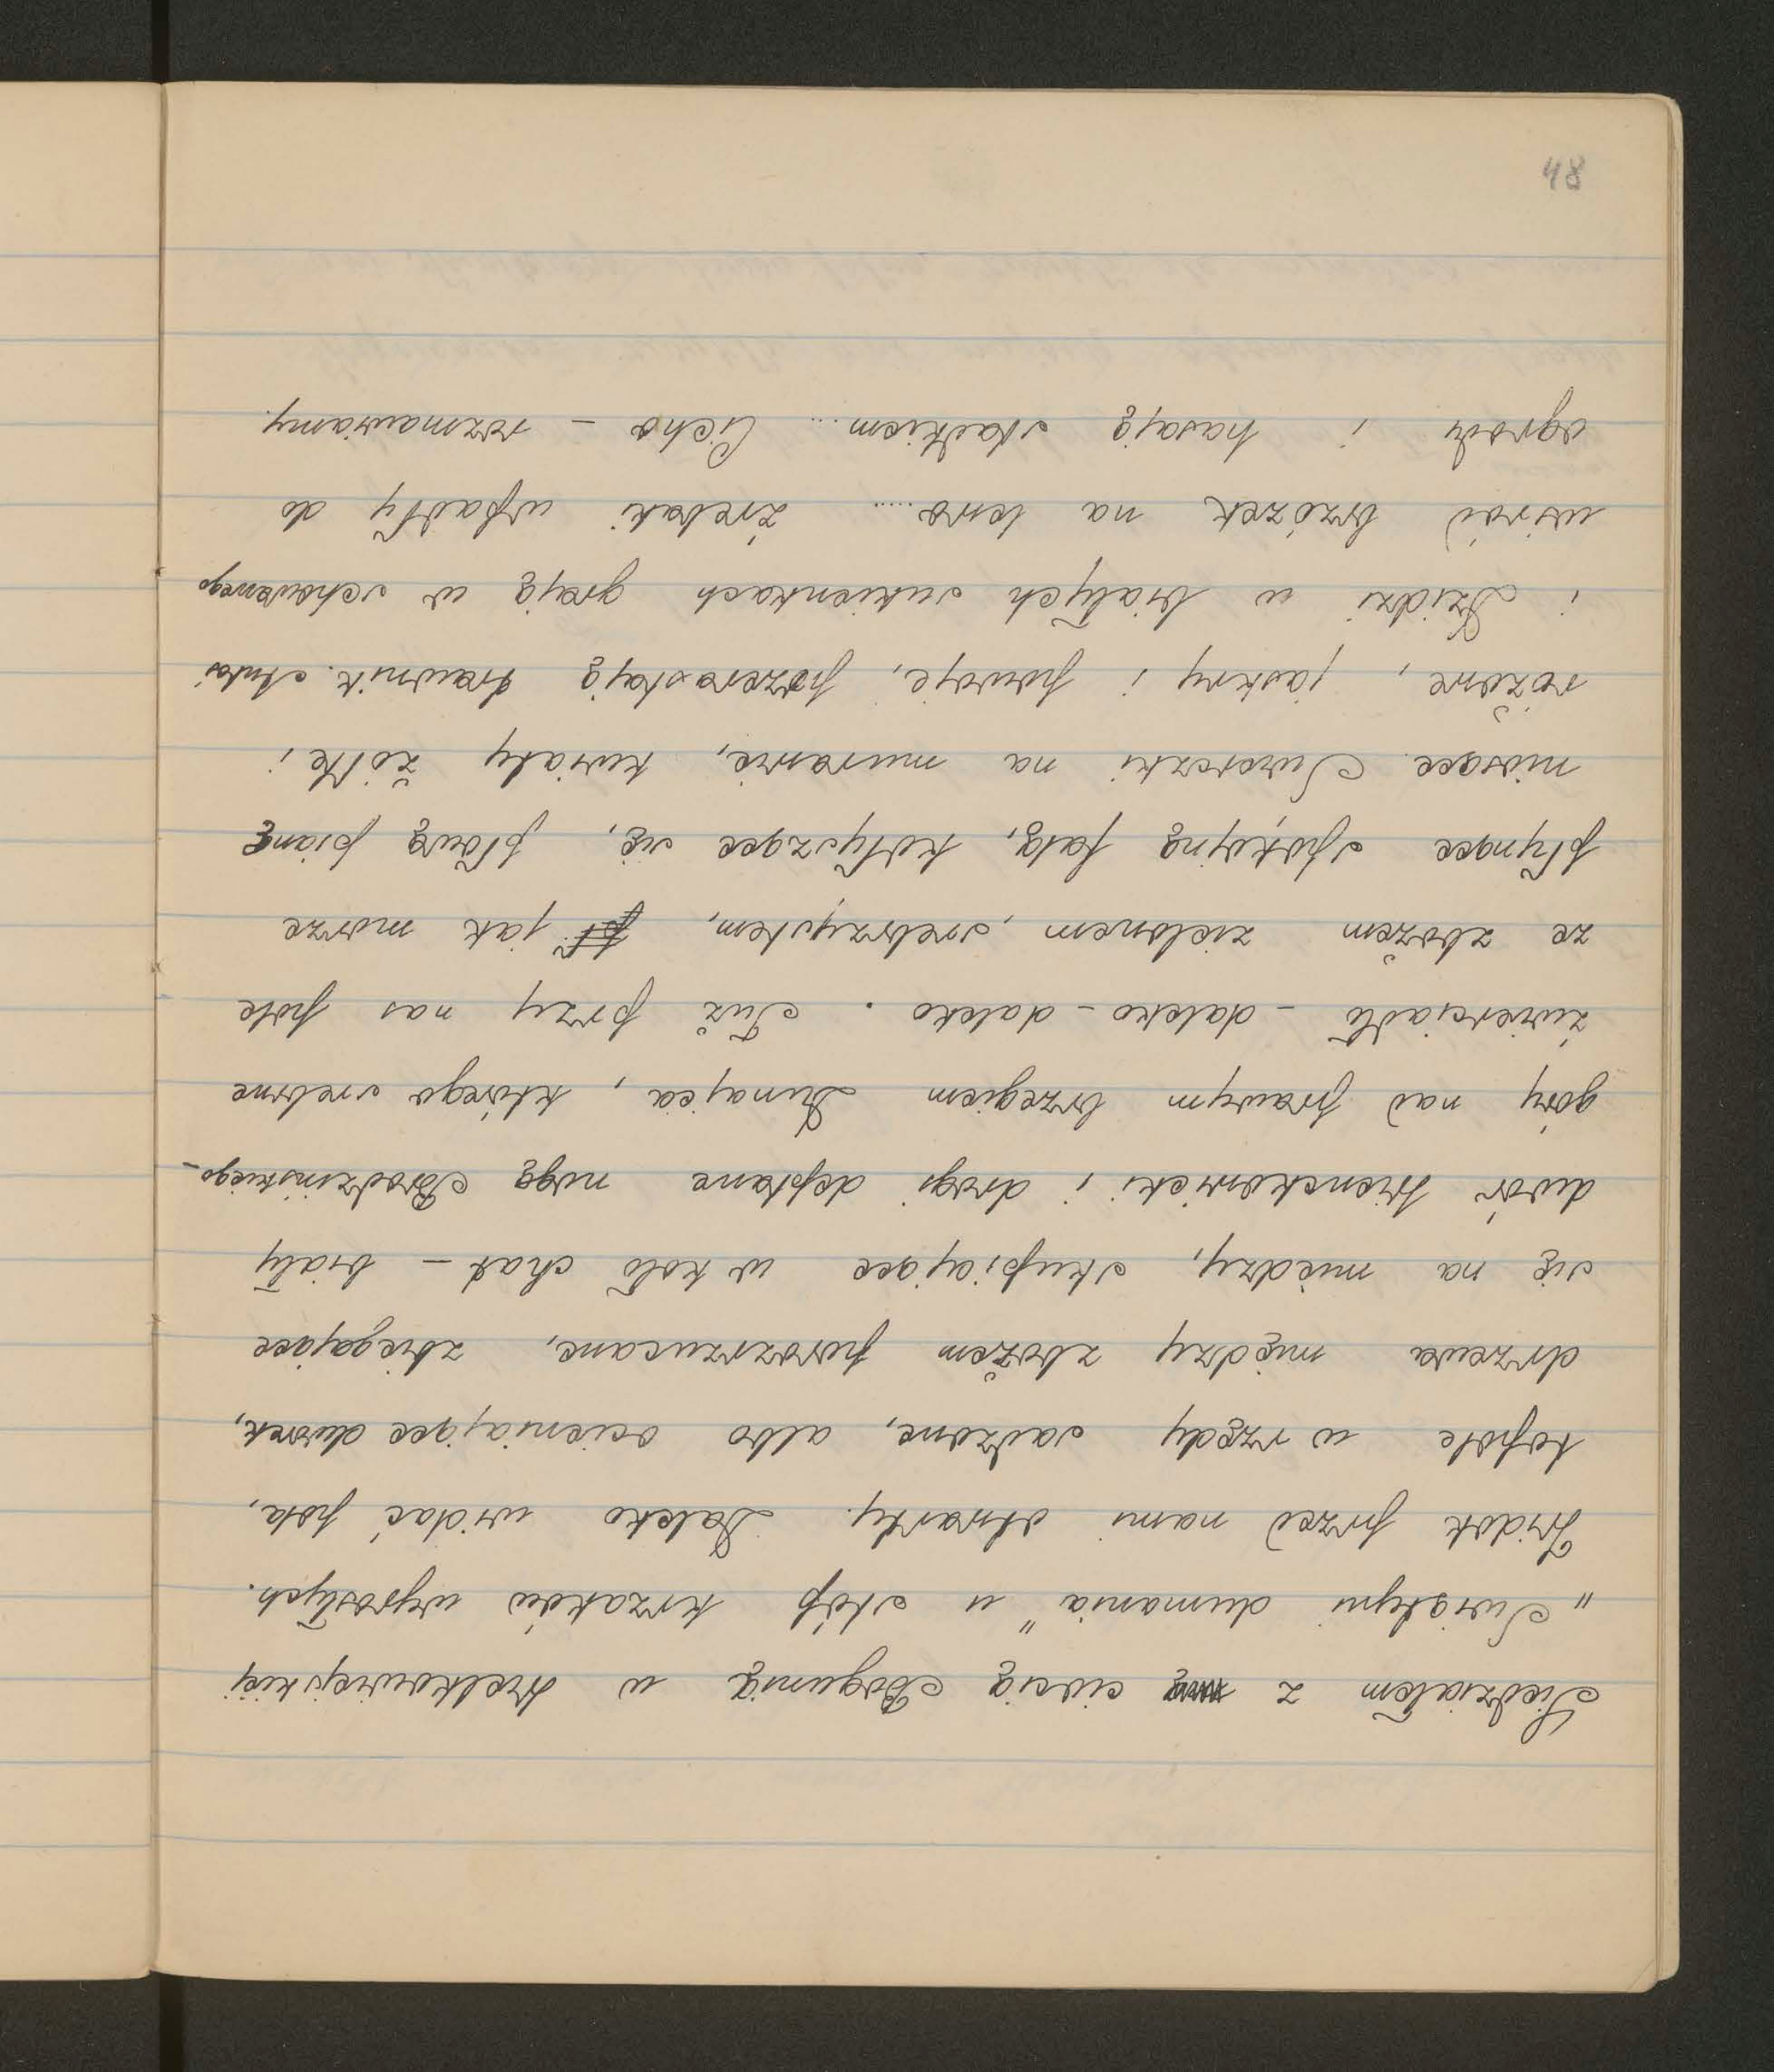 48
Siedziałem z ciocią Bogunią w Melkowiejskiej
"Świątyni dumania" u stóp krzaków wyrosłych.
Widok przed nami otwarty. Daleko widać pola,
topole w rzędy sadzone, albo ocieniające dworek,
drzewa między zbożem porozrzucane, zbiegające
się na miedzy, skupiające w koło chat – biały
dwór Wienckowicki i drogi deptane nogą Brodzińskiego –
góry nad prawym brzegiem Dunajca, którego srebrne
źwierciadło – daleko – daleko. Tuż przy nas pole
ze zbożem zielonem, srebrzystem, jak morze
płynące spokojną falą, kołyszące się, płową pianę
niosące. Świereczki na murawie, kwiaty żółte i
różowe, jaskry i powoje, pozerastają trawnik. Antoś
i Dzidzi w białych sukienkach grają w schowanego
wśród brzózek na lewo.... źrebaki wpadły do
ogrodu i hasają stadkiem... Cicho – rozmawiamy.